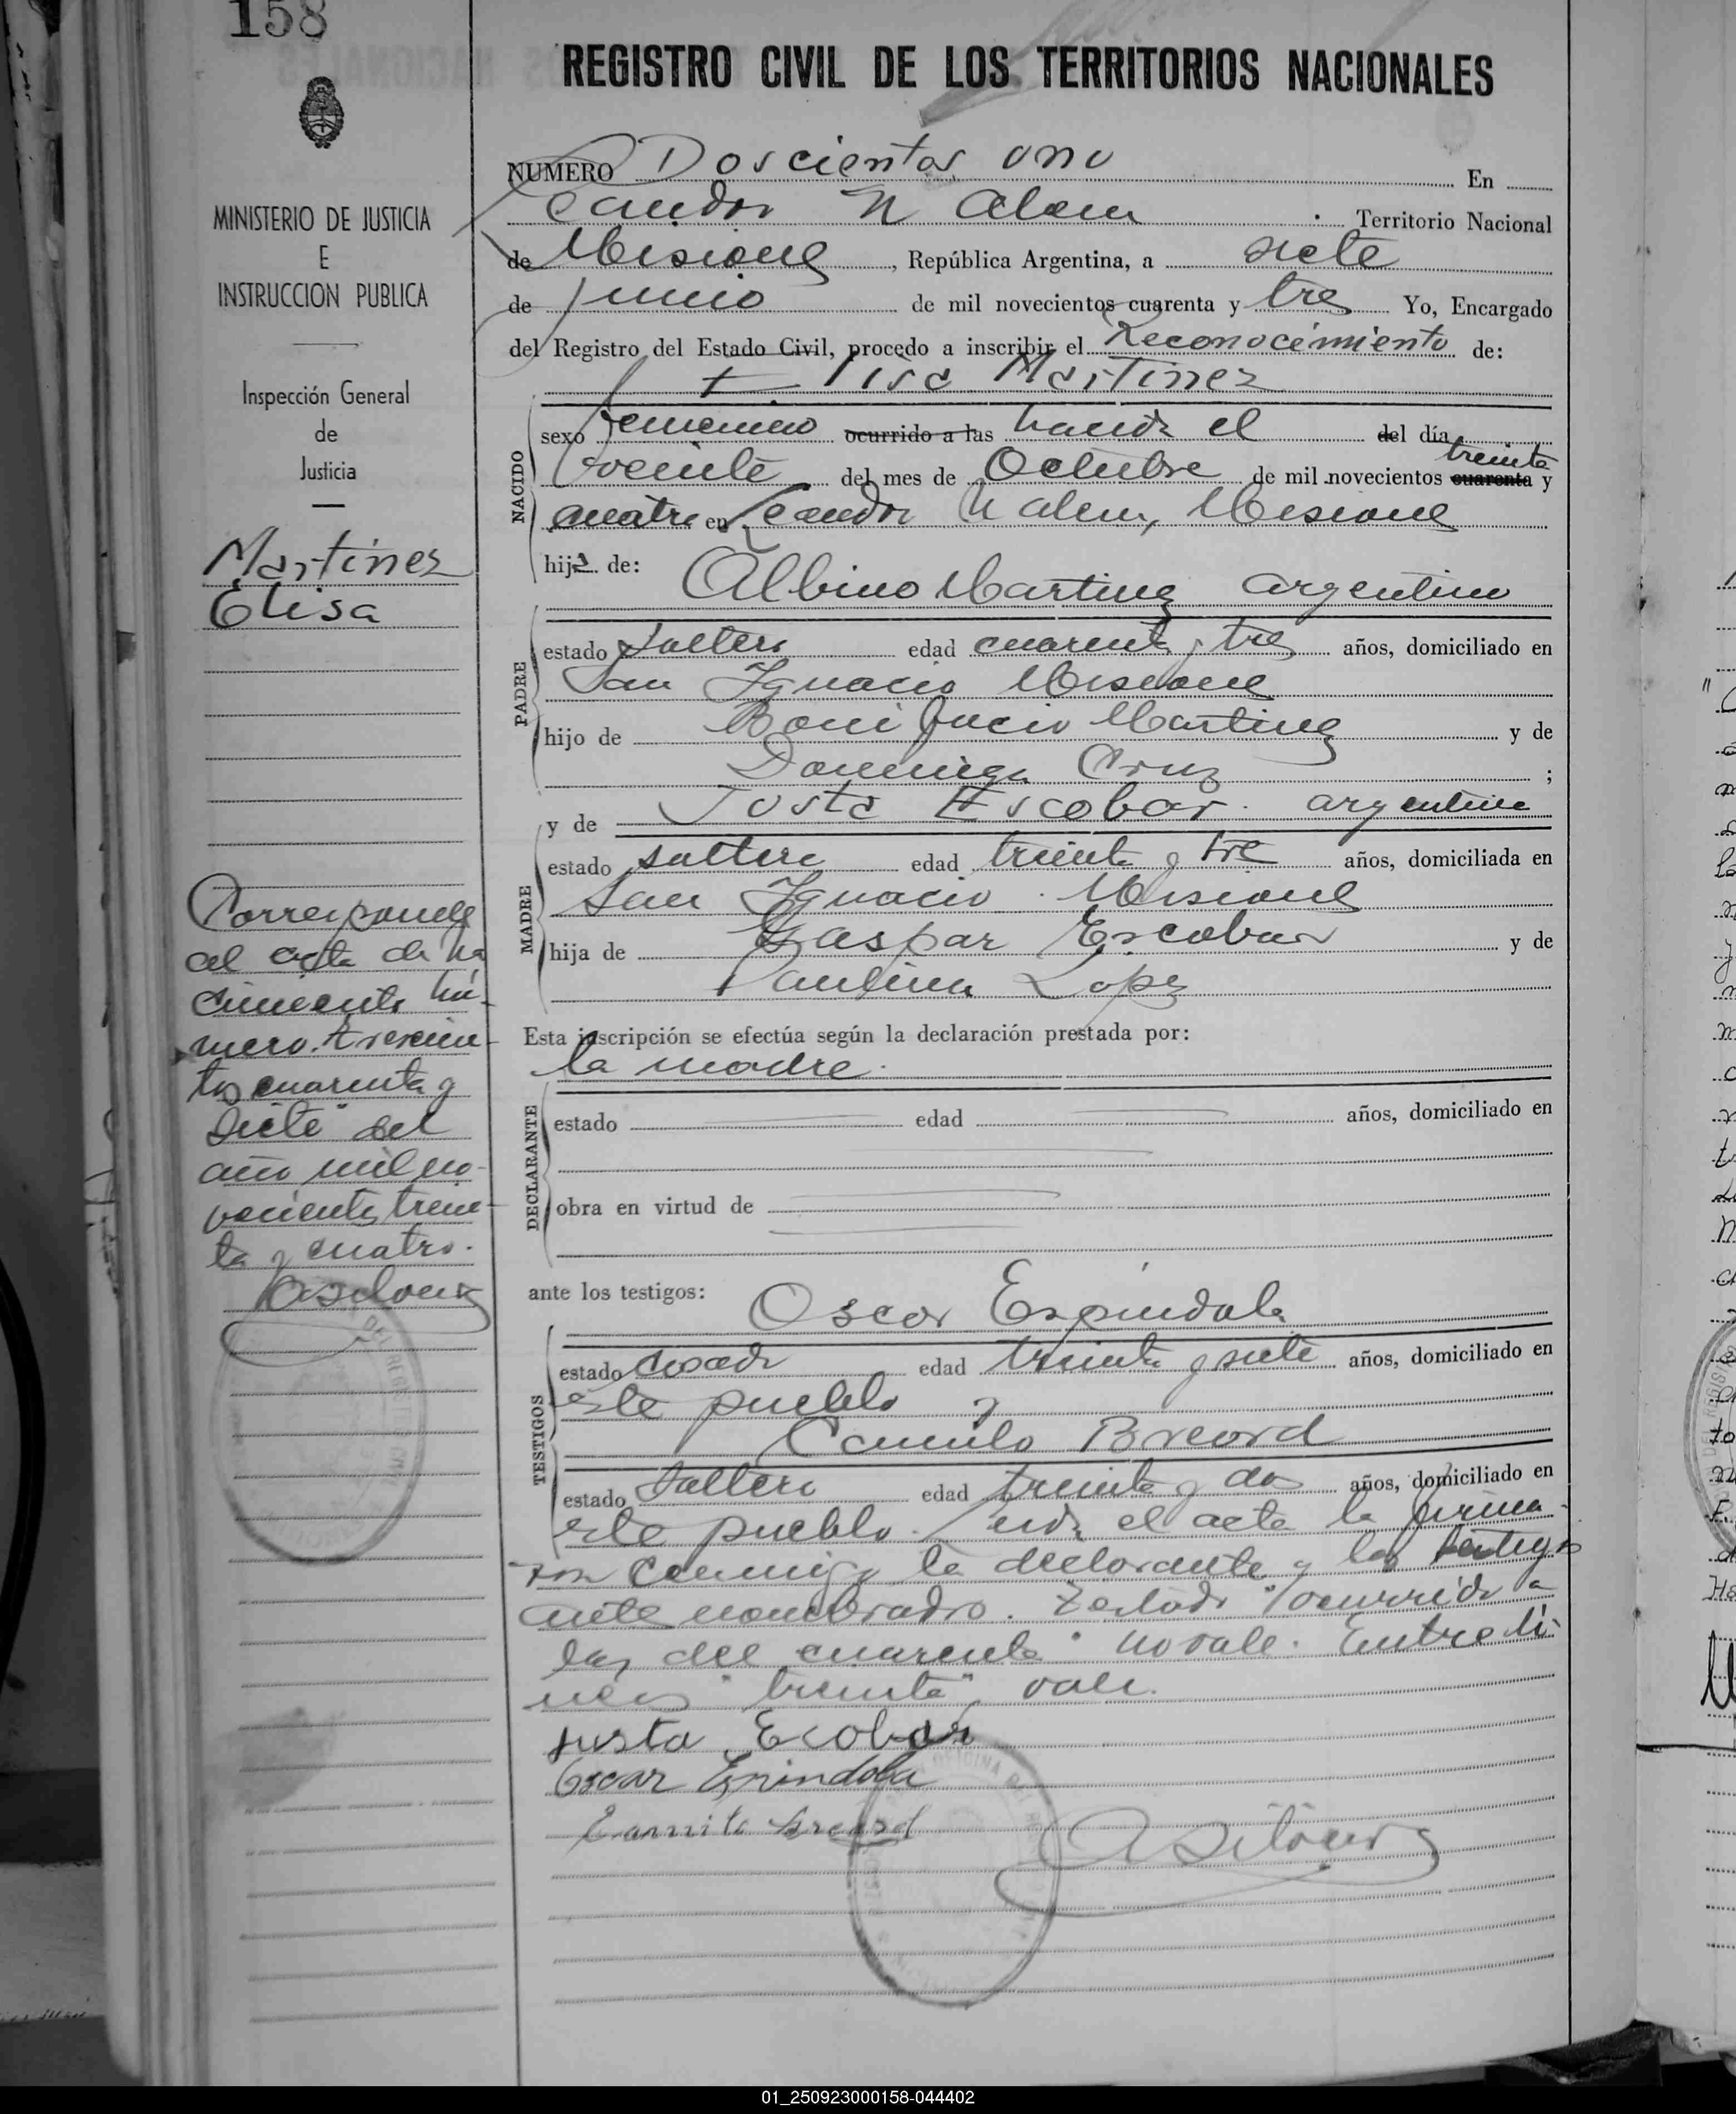 158
REGISTRO CIVIL DE LOS TERRITORIOS NACIONALES
MINISTERIO DE JUSTICIA
E
INSTRUCCION PUBLICA
Inspección General
de
Justicia
Martinez
Elisa
Corresponde
al acta de na
cimiento nú-
mero trescien-
tos cuarenta y
siete del
año mil no-
vecientos trein-
ta y cuatro.
NUMERO Doscientos uno En
Leandro N Alem Territorio Nacional
de Misiones, República Argentina, a siete
de junio de mil novecientos cuarenta y tres Yo, Encargado
del Registro del Estado Civil, procedo a inscribir el Reconocimiento de:
Elisa Martinez
NACIDO
sexo femenino ocurrido a las nacida el del día
veinte del mes de Octubre de mil novecientos cuarenta y
treinta
cuatro en Leandro N Alem, Misiones
hija de:
Albino Martinez argentino
PADRE
estado soltero edad cuarenta y tres años, domiciliado en
San Ignacio Misiones
hijo de Bonifacio Martinez y de
Dominga Cruz ;
y de Justa Escobar argentina
MADRE
estado soltera edad treinta y tres años, domiciliada en
San Ignacio Misiones
hija de Gaspar Escobar y de
Paulina Lopez
Esta inscripción se efectúa según la declaración prestada por:
la madre.
DECLARANTE
estado edad años, domiciliado en
obra en virtud de
ante los testigos:
Oscar Espindola
TESTIGOS
estado casado edad treinta y siete años, domiciliado en
este pueblo y
Camilo Breard
estado soltero edad treinta y dos años, domiciliado en
este pueblo. Leida el acta la firma-
ron conmigo la declarante y los testigos
ante nombrados. Testado "ocurrido a
las del cuarenta" no vale. Entre lí-
neas "treinta" vale.
Justa Ecobar
Oscar Espindola
Camilo Breard
01_250923000158-044402